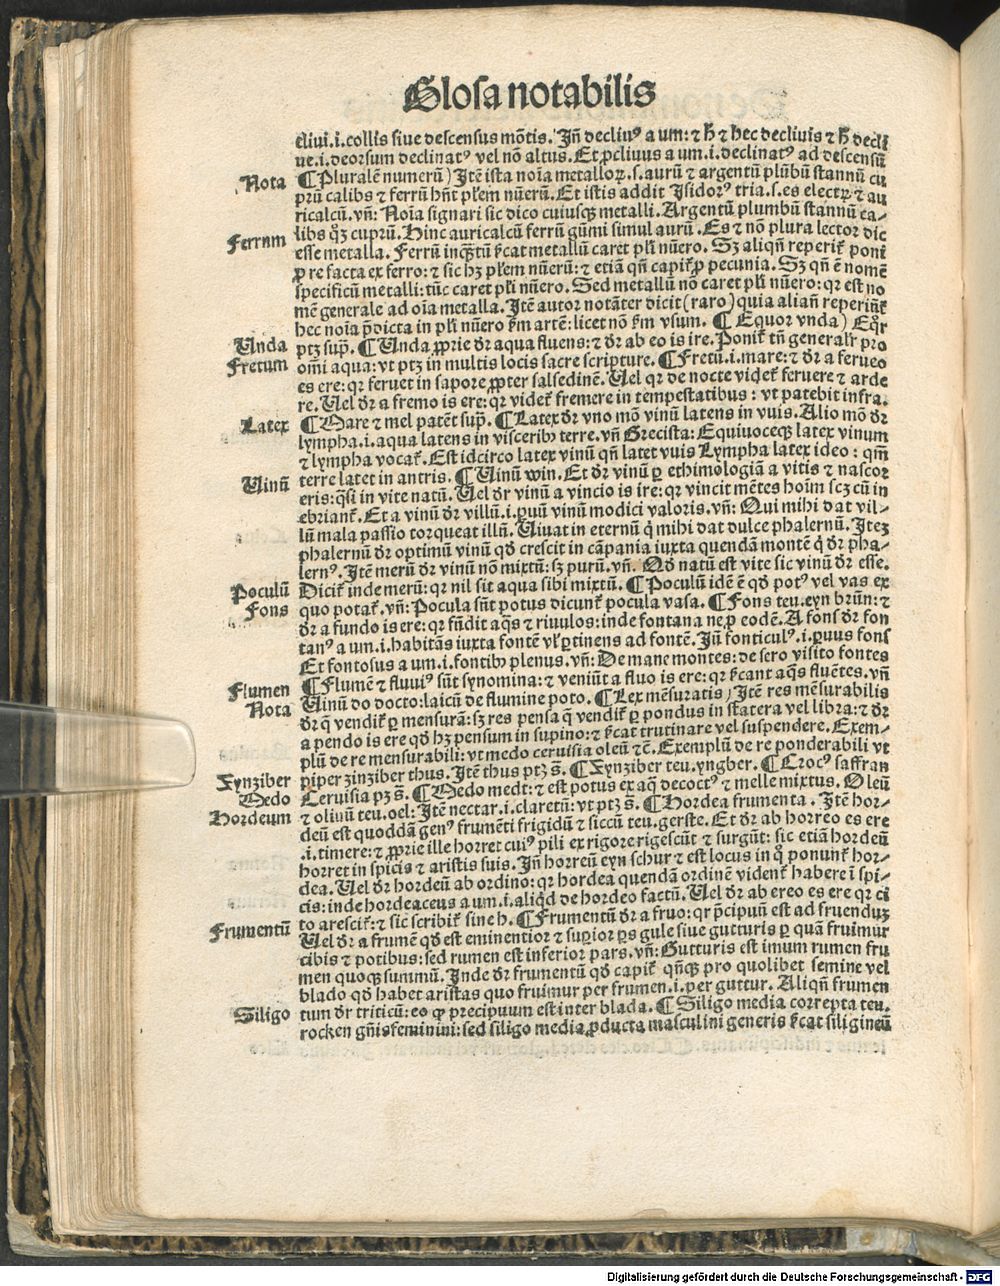 Glosa notabilis
clivi.i.collis sive descensus mõtis. Jñ declivꝰ a um: ⁊ ħ ⁊ hec declivis ⁊ ħ decli
ve.i.deorsum declinatꝰ vel nõ altus. Et ꝓclivus a um.i.declinatꝰ ad descensũ
Nota
¶ Pluralẽ numerũ) Itẽ ista noĩa metalloꝝ.s.aurũ ⁊ argentũ plũbũ stannũ cu
prũ calibs ⁊ ferrũ hñt pl̃em nũerũ. Et istis addit Isidorꝰ tria.s.es electꝝ ⁊ au
ricalcũ. vñ: Noĩa signari sic dico cuiusqꝫ metalli. Argentũ plumbũ stannũ ca-
libs qꝫ cuprũ. Hinc auricalcũ ferrũ gũmi simul aurũ. Es ⁊ nõ plura lector dic
Ferrnm
esse metalla. Ferrũ inqꝫtũ s̃cat metallũ caret pl̃i nũero. Sꝫ aliqñ reperit᷑ poni
ꝓ re facta ex ferro: ⁊ sic hꝫ pl̃em nũerũ: ⁊ etiã qñ capit᷑ ꝓ pecunia. Sꝫ qñ ẽ nomẽ
specificũ metalli: tũc caret pl̃i nũero. Sed metallũ nõ caret pl̃i nũero: qr est no
mẽ generale ad oĩa metalla. Itẽ autor notãter dicit (raro) quia aliañ reperiũt᷑
hec noĩa p̃dicta in pl̃i nũero s̃m artẽ: licet nõ s̃m vsum. ¶ Equor vnda) Eq̊r
Unda
ptꝫ sup̃. ¶ Unda ꝓprie dr̃ aqua fluens: ⁊ dr̃ ab eo is ire. Ponit᷑ tñ generalr̃ pro
Fretum
omĩ aqua: vt ptꝫ in multis locis sacre scripture. ¶ Fretũ.i.mare: ⁊ dr̃ a ferueo
es ere: qr feruet in sapore ꝓpter salsedinẽ. Uel qr de nocte videt᷑ feruere ⁊ arde
re. Uel dr̃ a fremo is ere: qr videt᷑ fremere in tempestatibus: vt patebit infra.
Latex
¶ Mare ⁊ mel patẽt sup̃. ¶ Latex dr̃ vno mõ vinũ latens in vuis. Alio mõ dr̃
lympha.i.aqua latens in visceribꝰ terre. vñ Grecista: Equiuoceqꝫ latex vinum
⁊ lympha vocat᷑. Est idcirco latex vinũ qñ latet vuis Lympha latex ideo: qm̃
Uinũ
terre latet in antris. ¶ Uinũ win. Et dr̃ vinũ ꝑ ethimologiã a vitis ⁊ nascor
eris: q̃si in vite natũ. Uel dr̃ vinũ a vincio is ire: qr vincit mẽtes hoĩm scꝫ cũ in
ebriant᷑. Et a vinũ dr̃ villũ.i.ꝑuũ vinũ modici valoris. vñ: Qui mihi dat vil-
lũ mala passio torqueat illũ. Uiuat in eternũ q̇ mihi dat dulce phalernũ. Iteꝫ
phalernũ dr̃ optimũ vinũ qd̃ crescit in cãpania iuxta quendã montẽ q̇ dr̃ pha-
lernꝰ. Itẽ merũ dr̃ vinũ nõ mixtũ: sꝫ purũ. vñ. Qd̃ natũ est vite sic vinũ dr̃ esse.
Poculũ
Dicit᷑ inde merũ: qr nil sit aqua sibi mixtũ. ¶ Poculũ idẽ ẽ qd̃ potꝰ vel vas ex
Fons
quo potat᷑. vñ: Pocula sũt potus dicunt᷑ pocula vasa. ¶ Fons teu.eyn brũn: ⁊
dr̃ a fundo is ere: qr fũdit aq̃s ⁊ riuulos: inde fontana ne, ꝓ eodẽ. A fons dr̃ fon
tanꝰ a um.i.habitãs iuxta fontẽ vl̃ ꝑtinens ad fontẽ. Jñ fonticulꝰ.i.ꝑuus fons
Et fontosus a um.i.fontibꝰ plenus. vñ: De mane montes: de sero visito fontes
Flumen
¶ Flumẽ ⁊ fluuiꝰ sũt synomina: ⁊ veniũt a fluo is ere: qr s̃cant aq̃s fluẽtes. vñ
Nota
Uinũ do docto: laicũ de flumine poto. ¶ Lex mẽsuratis) Itẽ res mẽsurabilis
dr̃ q̃ vendit᷑ ꝑ mensurã: sꝫ res pensa q̃ vendit᷑ ꝑ pondus in statera vel libra: ⁊ dr̃
a pendo is ere qd̃ hꝫ pensum in supino: ⁊ s̃cat trutinare vel suspendere. Exem-
plũ de re mensurabili: vt medo ceruisia oleũ ⁊c̃. Exemplũ de re ponderabili vt
piper zinziber thus. Itẽ thus ptꝫ s̃. ¶ Zynziber teu.yngber. ¶ Crocꝰ saffran
Zynziber
Medo
Ceruisia pꝫ s̃. ¶ Medo medt: ⁊ est potus ex aq̃ decoctꝰ ⁊ melle mixtus. Oleũ
Hordeum
⁊ olivũ teu.oel: Itẽ nectar.i.claretũ: vt ptꝫ s̃. ¶ Hordea frumenta. Itẽ hor-
deũ est quoddã genꝰ frumẽti frigidũ ⁊ siccũ teu.gerste. Et dr̃ ab horreo es ere
.i.timere: ⁊ ꝓprie ille horret cuiꝰ pili ex rigore rigescũt ⁊ surgũt: sic etiã hordeũ
horret in spicis ⁊ aristis suis. Jñ horreũ eyn schur ⁊ est locus in q̊ ponunt᷑ hor-
dea. Uel dr̃ hordeũ ab ordino: qr hordea quendã ordinẽ vident᷑ habere ĩ spi-
cis: inde hordeaceus a um.i.aliq̇d de hordeo factũ. Uel dr̃ ab ereo es ere qr ci
to arescit᷑: ⁊ sic scribit᷑ sine h. ¶ Frumentũ dr̃ a fruo: qr p̃cipuũ est ad fruenduꝫ
Frumentũ
Uel dr̃ a frumẽ qd̃ est eminentior ⁊ suꝑior ꝑs gule siue gutturis ꝑ quã fruimur
cibis ⁊ potibus: sed rumen est inferior pars. vñ: Gutturis est imum rumen fru
men quoqꝫ summũ. Inde dr̃ frumentũ qd̃ capit᷑ qñqꝫ pro quolibet semine vel
blado qd̃ habet aristas quo fruimur per frumen.i.per guttur. Aliqñ frumen
Siligo
tum dr̃ triticũ: eo ꝙ precipuum est inter blada. ¶ Siligo media correpta teu.
rocken gñis feminini: sed siligo media ꝓducta masculini generis s̃cat siligineũ
Digitalisierung gefördert durch die Deutsche Forschungsgemeinschaft - DFG